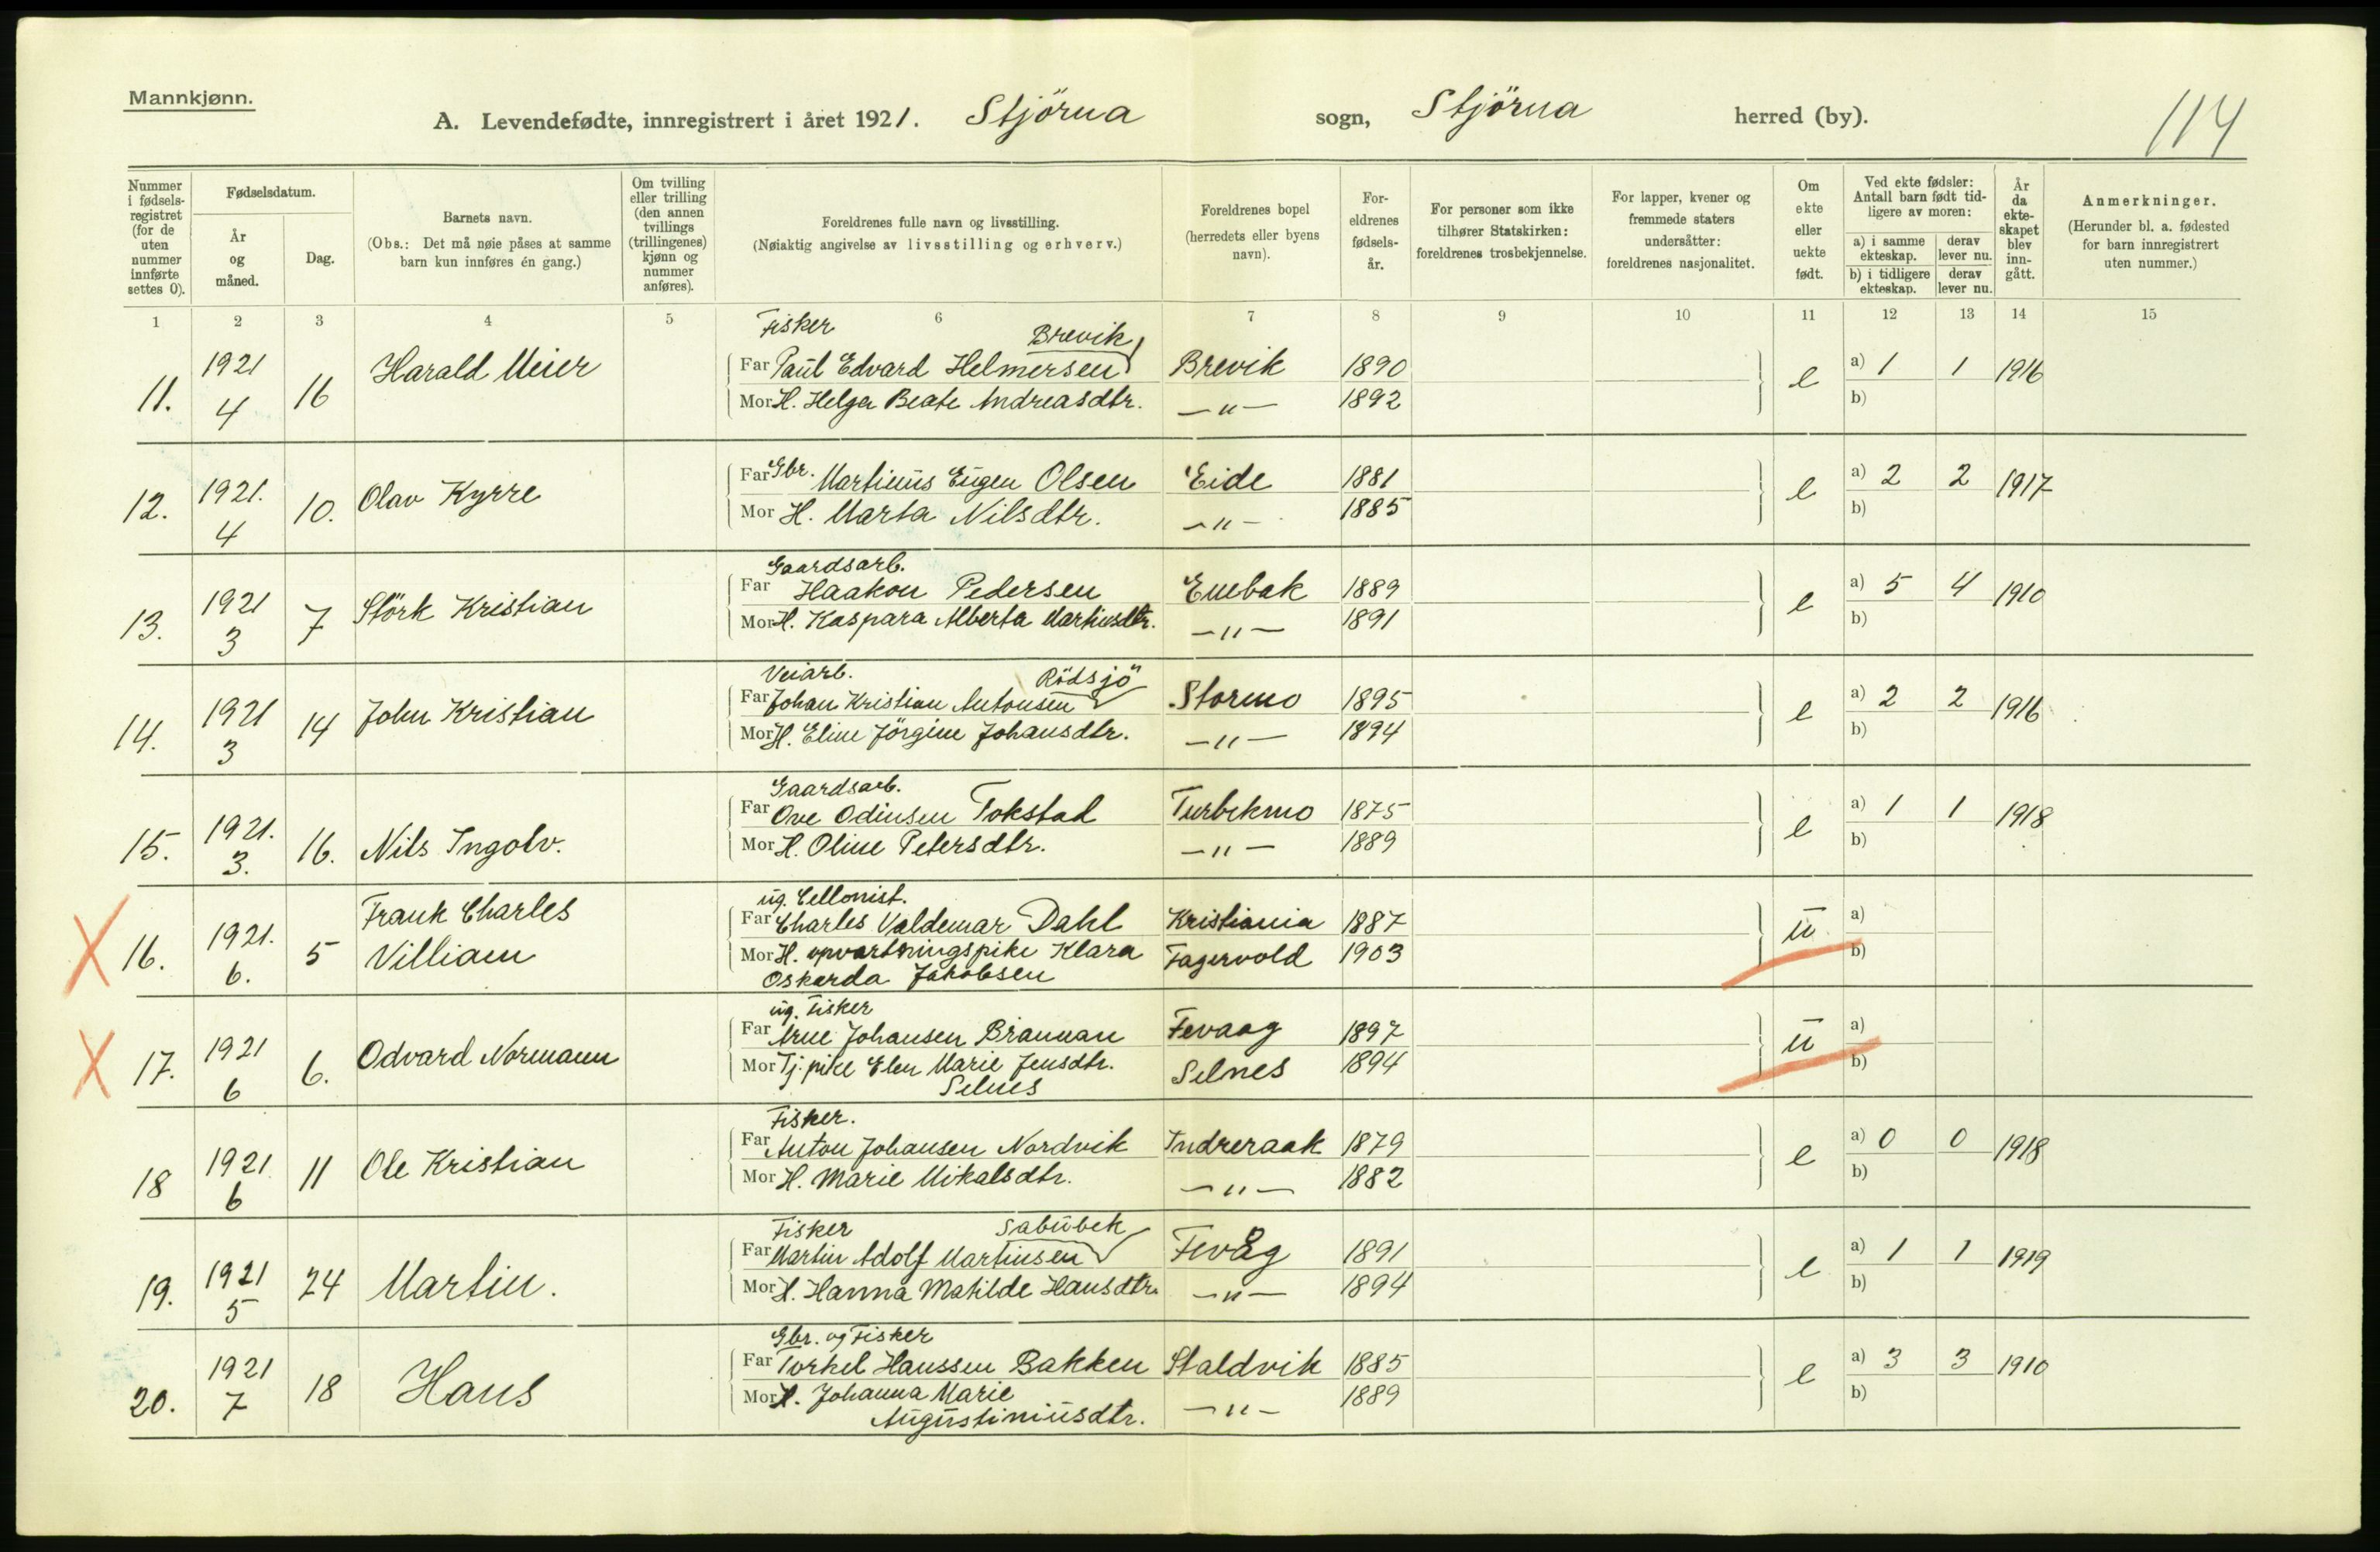 Mannkjønn.
A. Levendefødte, innregistrert i året 1921. Stjörna sogn, Stjörna herred (by).
114
Nummer i fødsels-registret (for de uten nummer innførte settes 0).
Fødselsdatum.
År og måned.
Dag.
Barnets navn.
(Obs.: Det må nøie påses at samme barn kun innføres én gang.)
Om tvilling eller trilling (den annen tvillings (trillingenes) kjønn og nummer anføres).
Foreldrenes fulle navn og livsstilling.
(Nøiaktig angivelse av livsstilling og erhverv.)
Foreldrenes bopel (herredets eller byens navn).
For-eldrenes fødsels-år.
For personer som ikke tilhører Statskirken: foreldrenes trosbekjennelse.
For lapper, kvener og fremmede staters undersåtter: foreldrenes nasjonalitet.
Om ekte eller uekte født.
Ved ekte fødsler: Antall barn født tid-ligere av moren:
a) i samme ekteskap. derav lever nu.
b) i tidligere ekteskap. derav lever nu.
År da ekte-skapet blev inn-gått.
Anmerkninger.
(Herunder bl. a. fødested for barn innregistrert uten nummer.)
1 2 3 4 5 6 7 8 9 10 11 12 13 14 15
Fisker Brevik
11. 1921 4 16 Harald Meier Far Paul Edvard Helmersen Brevik 1890 e a) 1 1 1916
Mor H. Helga Beate Andreasdtr. —"— 1892 b)
12. 1921. 4 10. Olav Kyrre Far Gbr. Martinus Eugen Olsen Eide 1881 e a) 2 2 1917
Mor H. Marta Nilsdtr. —"— 1885 b)
Gaardsarb.
13. 1921 3 7 Störk Kristian Far Haakon Pedersen Enebak 1889 e a) 5 4 1910
Mor H. Kaspara Alberta Martinsdtr. —"— 1891 b)
Veiarb. Rödsjö
14. 1921 3 14 John Kristian Far Johan Kristian Antonsen Stormo 1895 e a) 2 2 1916
Mor H. Eline Jörgine Johansdtr. —"— 1894 b)
Gaardsarb.
15. 1921. 3. 16. Nils Ingolv. Far Ove Odinsen Tokstad Turbekmo 1875 e a) 1 1 1918
Mor H. Oline Petersdtr. —"— 1889 b)
ug. Cellonist.
16. 1921. 6. 5 Frank Charles Villiam Far Charles Valdemar Dahl Kristiania 1887 u a)
Mor H. opvartningspike Klara Fagervold 1903 b)
Oskarda Jakobsen
ug. Fisker
17. 1921 6 6. Odvard Normann Far Arne Johansen Brannan Fevaag 1897 u a)
Mor Tj. pike Elen Marie Jensdtr. Selnes 1894 b)
Selnes
Fisker.
18 1921 6 11 Ole Kristian Far Anton Johansen Nordvik Indreraak 1879 e a) 0 0 1918
Mor H. Marie Mikalsdtr. —"— 1882 b)
Fisker Sabubek
19. 1921 5 24 Martin. Far Martin Adolf Martinsen Fevåg 1891 e a) 1 1 1919
Mor H. Hanna Matilde Hansdtr. —"— 1894 b)
Gbr. og Fisker
20. 1921 7 18 Hans Far Torkel Hanssen Bakken Staldvik 1885 e a) 3 3 1910
Mor H. Johanna Marie —"— 1889 b)
Augustiniusdtr.